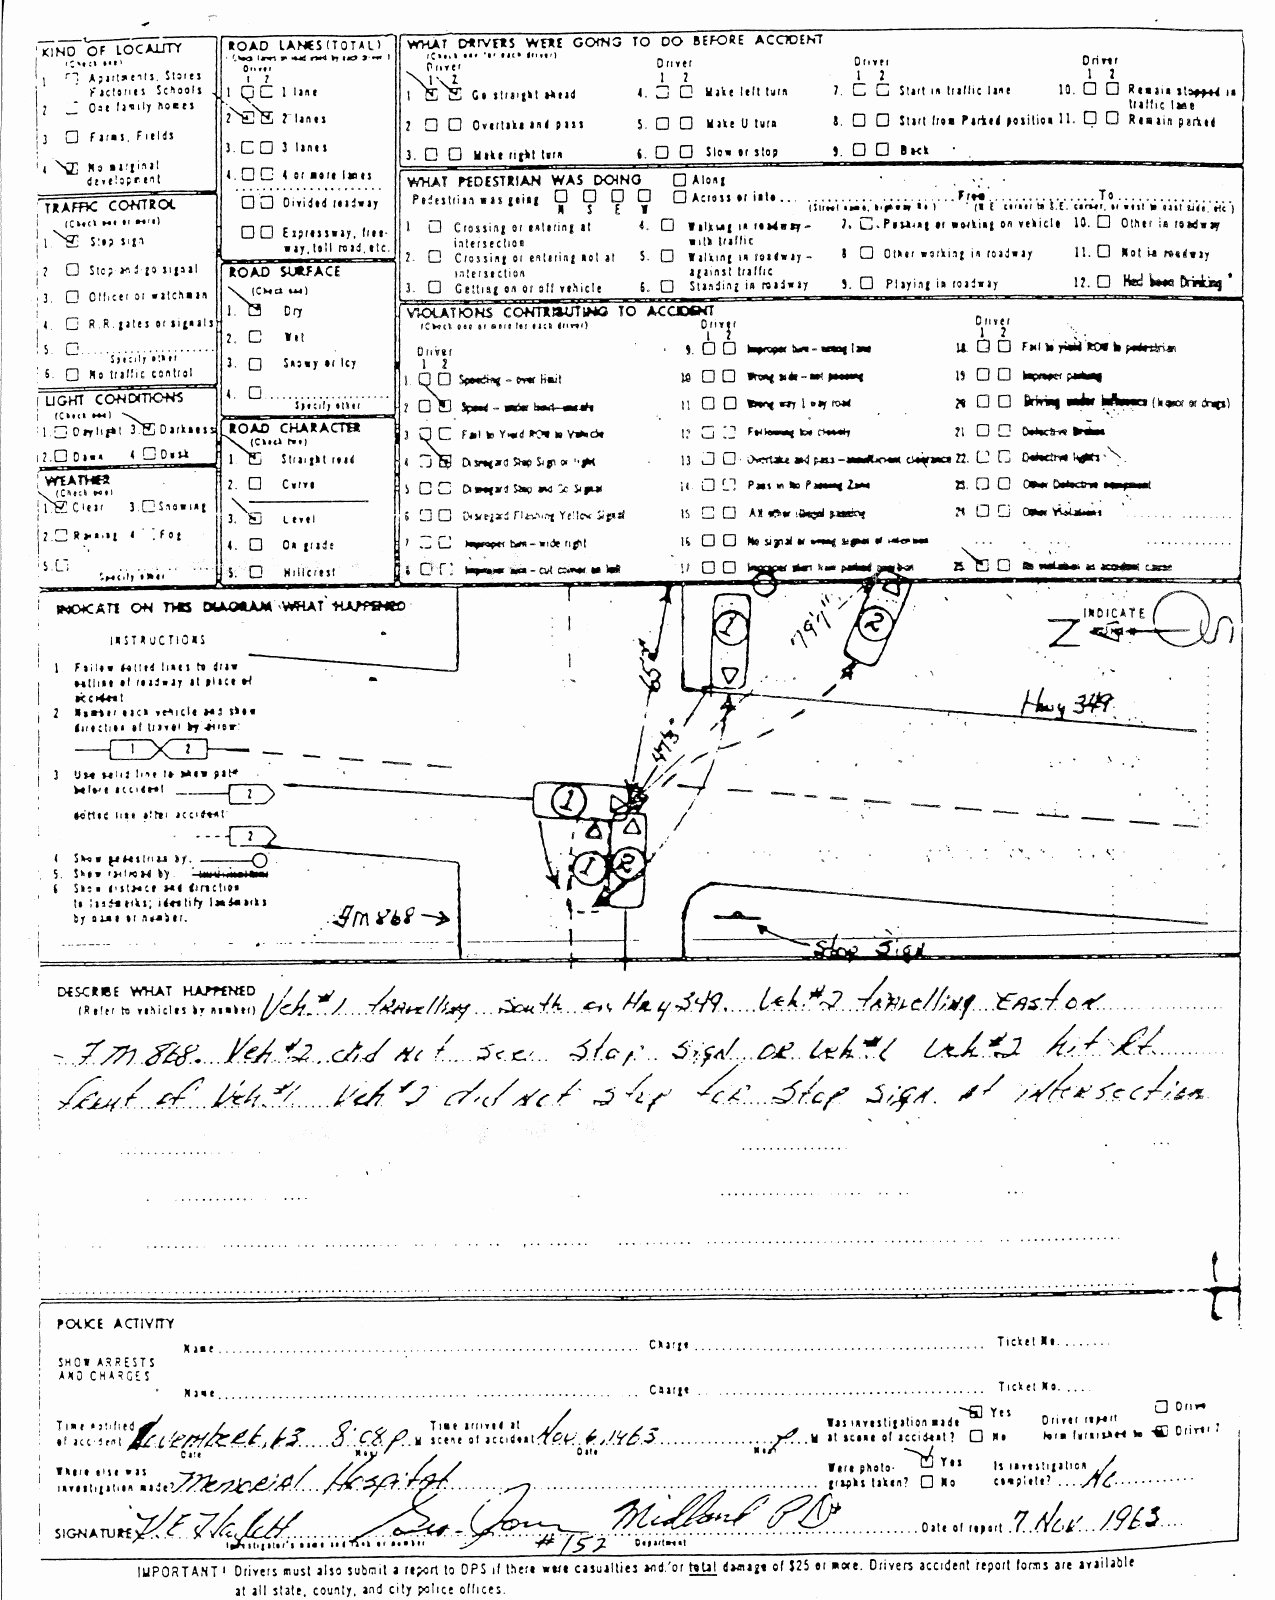 KIND OF LOCALITY
(Check one)
1 Apartments, Stores
Factories, Schools
2 One family homes
3 Farms, Fields
4 No marginal
development
TRAFFIC CONTROL
(Check one or more)
1. Stop sign
2 Stop and go signal
3. Officer or watchman
4. R.R. gates or signals
5.
Specify other
6. No traffic control
LIGHT CONDITIONS
(Check one)
1. Daylight 3. Darkness
2. Dawn 4 Dusk
WEATHER
(Check one)
1. Clear 3. Snowing
2. Raining 4 Fog
5.
Specify other
ROAD LANES (TOTAL)
(Check lanes on road used by each driver)
Driver
1 2
1 1 lane
2 2 lanes
3. 3 lanes
4. 4 or more lanes
Divided roadway
Expressway, free-
way, toll road, etc.
ROAD SURFACE
(Check one)
1. Dry
2. Wet
3. Snowy or Icy
4.
Specify other
ROAD CHARACTER
(Check two)
1 Straight road
2. Curve
3. Level
4. On grade
5. Hillcrest
WHAT DRIVERS WERE GOING TO DO BEFORE ACCIDENT
(Check one for each driver)
Driver Driver Driver Driver
1 2 1 2 1 2 1 2
1 Go straight ahead 4. Make left turn 7. Start in traffic lane 10. Remain stopped in
traffic lane
2 Overtake and pass 5. Make U turn 8. Start from Parked position 11. Remain parked
3. Make right turn 6. Slow or stop 9. Back
WHAT PEDESTRIAN WAS DOING Along
Pedestrian was going Across or into From To
N S E W (Street name, highway No.) (N.E. corner to S.E. corner, or west to east side, etc.)
1 Crossing or entering at
intersection
2. Crossing or entering not at
intersection
3. Getting on or off vehicle
4. Walking in roadway -
with traffic
5. Walking in roadway -
against traffic
6. Standing in roadway
7. Pushing or working on vehicle
8 Other working in roadway
9. Playing in roadway
10. Other in roadway
11. Not in roadway
12. Had been Drinking
VIOLATIONS CONTRIBUTING TO ACCIDENT
(Check one or more for each driver)
Driver
1 2
1. Speeding - over limit
2 Speed - under limit - unsafe
3 Fail to Yield ROW to Vehicle
4 Disregard Stop Sign or light
5 Disregard Stop and Go Signal
6 Disregard Flashing Yellow Signal
7 Improper turn - wide right
8 Improper turn - cut corner on left
Driver
1 2
9. Improper turn - wrong lane
10 Wrong side - not passing
11 Wrong way 1 way road
12 Following too closely
13 Overtake and pass - insufficient clearance
14 Pass in No Passing Zone
15 All other illegal passing
16 No signal or wrong signal of intention
17 Improper start from parked position
Driver
1 2
18. Fail to yield ROW to pedestrian
19 Improper parking
20 Driving under influence (liquor or drugs)
21 Defective Brakes
22. Defective lights
23. Other Defective equipment
24 Other Violations
25 No violation as accident cause
INDICATE ON THIS DIAGRAM WHAT HAPPENED
INSTRUCTIONS
1 Follow dotted lines to draw
outline of roadway at place of
accident
2 Number each vehicle and show
direction of travel by arrow:
1 2
3 Use solid line to show path
before accident 2
dotted line after accident
2
4 Show pedestrian by:
5. Show railroad by
6 Show distance and direction
to landmarks; identify landmarks
by name or number.
INDICATE
N
1
2
79'7"
65'
47'3"
Hwy 349
1
1
2
FM 868
Stop Sign
DESCRIBE WHAT HAPPENED
(Refer to vehicles by number) Veh. #1 travelling south on Hwy 349. Veh. #2 travelling East on
FM 868. Veh #2 did not see stop sign or Veh #1 Veh #2 hit Rt.
front of Veh. #1 Veh #2 did not stop for stop sign at intersection
POLICE ACTIVITY
SHOW ARRESTS
AND CHARGES
Name Charge Ticket No.
Name Charge Ticket No.
Time notified
of accident November 6, 63 8:08 p M
Date Hour
Time arrived at
scene of accident Nov 6, 1963 p M
Date Hour
Was investigation made Yes
at scene of accident? No
Driver report Driver 1
form furnished to Driver 2
Where else was
investigation made Memorial Hospital
Were photo- Yes
graphs taken? No
Is investigation
complete? No
SIGNATURE Midland P D
#152
Investigator's name and rank or number Department
Date of report 7 Nov 1963
IMPORTANT! Drivers must also submit a report to DPS if there were casualties and/or total damage of $25 or more. Drivers accident report forms are available
at all state, county, and city police offices.